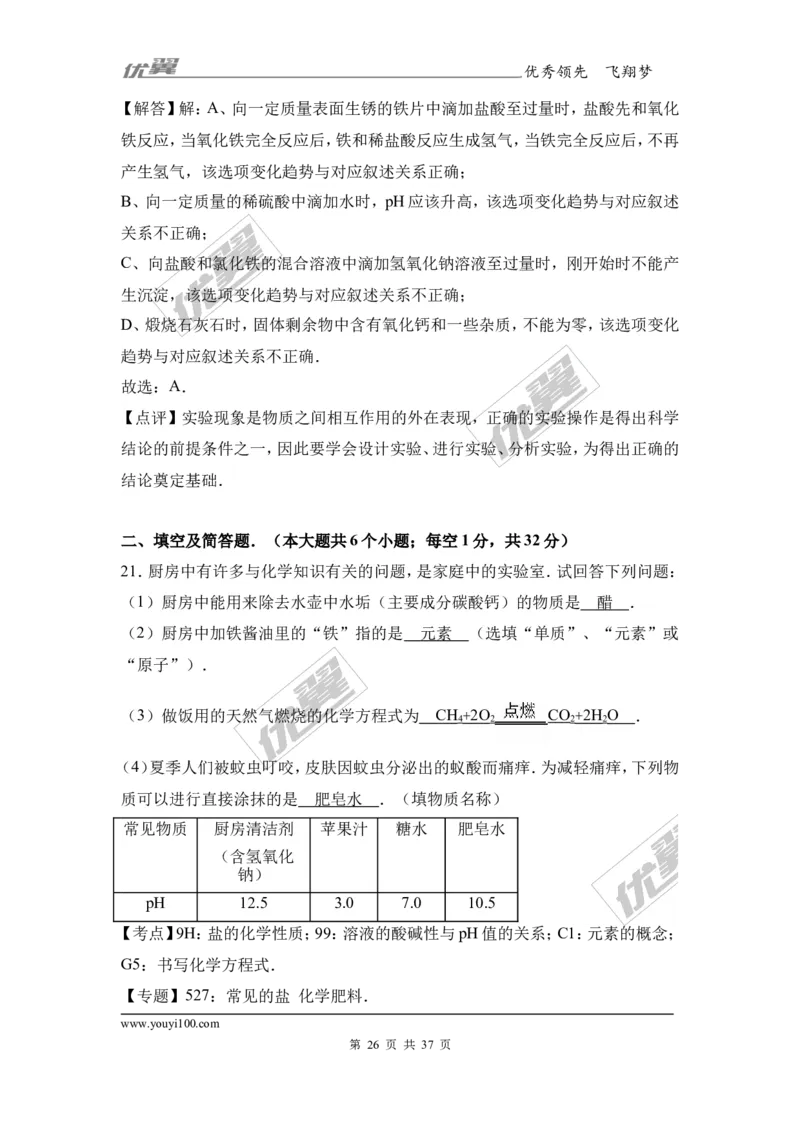 优翼 优秀领先 飞翔梦
【解答】解：A、向一定质量表面生锈的铁片中滴加盐酸至过量时，盐酸先和氧化
铁反应，当氧化铁完全反应后，铁和稀盐酸反应生成氢气，当铁完全反应后，不再
产生氢气，该选项变化趋势与对应叙述关系正确；
B、向一定质量的稀硫酸中滴加水时，pH应该升高，该选项变化趋势与对应叙述
关系不正确；
C、向盐酸和氯化铁的混合溶液中滴加氢氧化钠溶液至过量时，刚开始时不能产
生沉淀，该选项变化趋势与对应叙述关系不正确；
D、煅烧石灰石时，固体剩余物中含有氧化钙和一些杂质，不能为零，该选项变化
趋势与对应叙述关系不正确．
故选：A．
【点评】实验现象是物质之间相互作用的外在表现，正确的实验操作是得出科学
结论的前提条件之一，因此要学会设计实验、进行实验、分析实验，为得出正确的
结论奠定基础．
二、填空及简答题．（本大题共6个小题；每空1分，共32分）
21．厨房中有许多与化学知识有关的问题，是家庭中的实验室．试回答下列问题：
（1）厨房中能用来除去水壶中水垢（主要成分碳酸钙）的物质是 醋 ．
（2）厨房中加铁酱油里的“铁”指的是 元素 （选填“单质”、“元素”或
“原子”）．
（3）做饭用的天然气燃烧的化学方程式为 CH₄+2O₂ 点燃 CO₂+2H₂O ．
（4）夏季人们被蚊虫叮咬，皮肤因蚊虫分泌出的蚁酸而痛痒．为减轻痛痒，下列物
质可以进行直接涂抹的是 肥皂水 ．（填物质名称）
常见物质 厨房清洁剂 苹果汁 糖水 肥皂水
（含氢氧化
钠）
pH 12.5 3.0 7.0 10.5
【考点】9H：盐的化学性质；99：溶液的酸碱性与pH值的关系；C1：元素的概念；
G5：书写化学方程式．
【专题】527：常见的盐 化学肥料．
www.youyi100.com
第 26 页 共 37 页
优翼
优翼
优翼
优翼